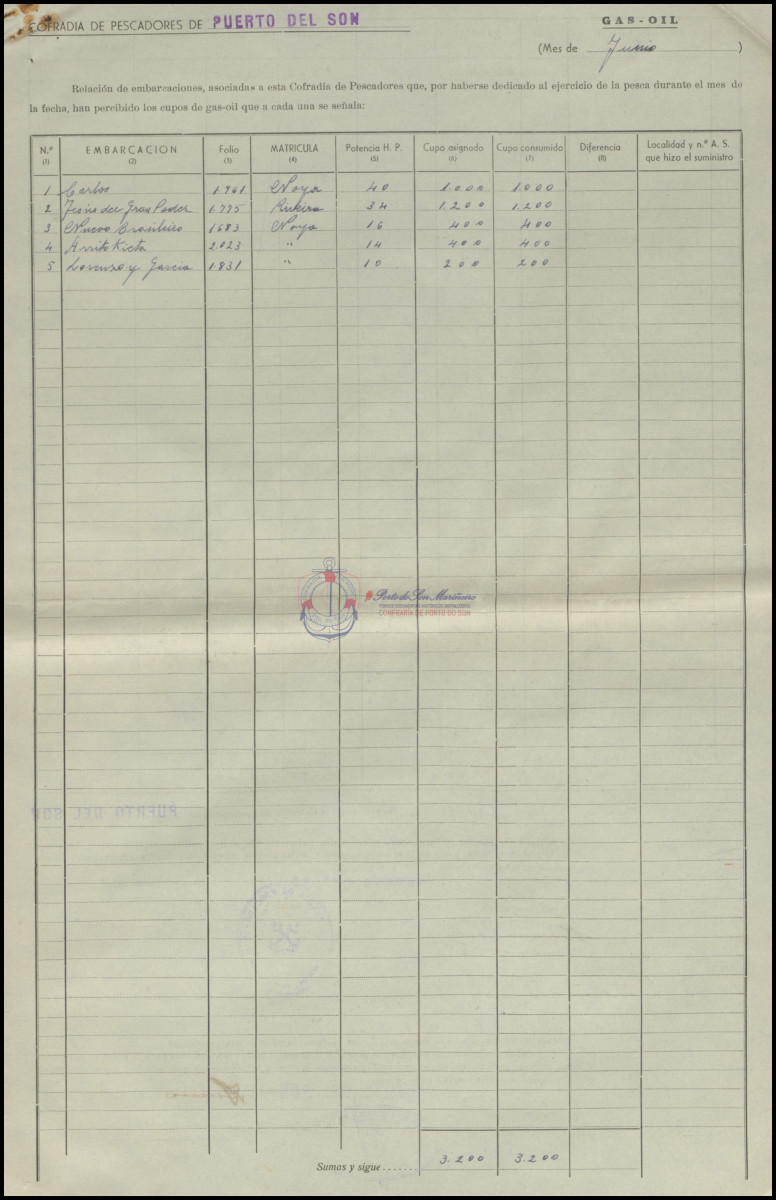 COFRADIA DE PESCADORES DE PUERTO DEL SON
GAS-OIL
(Mes de Junio )
Relación de embarcaciones, asociadas a esta Cofradía de Pescadores que, por haberse dedicado al ejercicio de la pesca durante el mes de
la fecha, han percibido los cupos de gas-oil que a cada una se señala:
N.º (1) EMBARCACION (2) Folio (3) MATRICULA (4) Potencia H. P. (5) Cupo asignado (6) Cupo consumido (7) Diferencia (8) Localidad y n.º A. S. que hizo el suministro
1 Carlos 1.961 Noya 40 1.000 1.000
2 Jesús del Gran Poder 1.775 34 1.200 1.200
3 Nuevo Brasileiro 1.683 Noya 16 400 400
4 2.023 " 14 400 400
5 Lorenzo y Garcia 1.831 " 10 200 200
Porto do Son Mariñeiro
CONFRARÍA DE PORTO DO SON
PUERTO DEL SON
Sumas y sigue....... 3.200 3.200